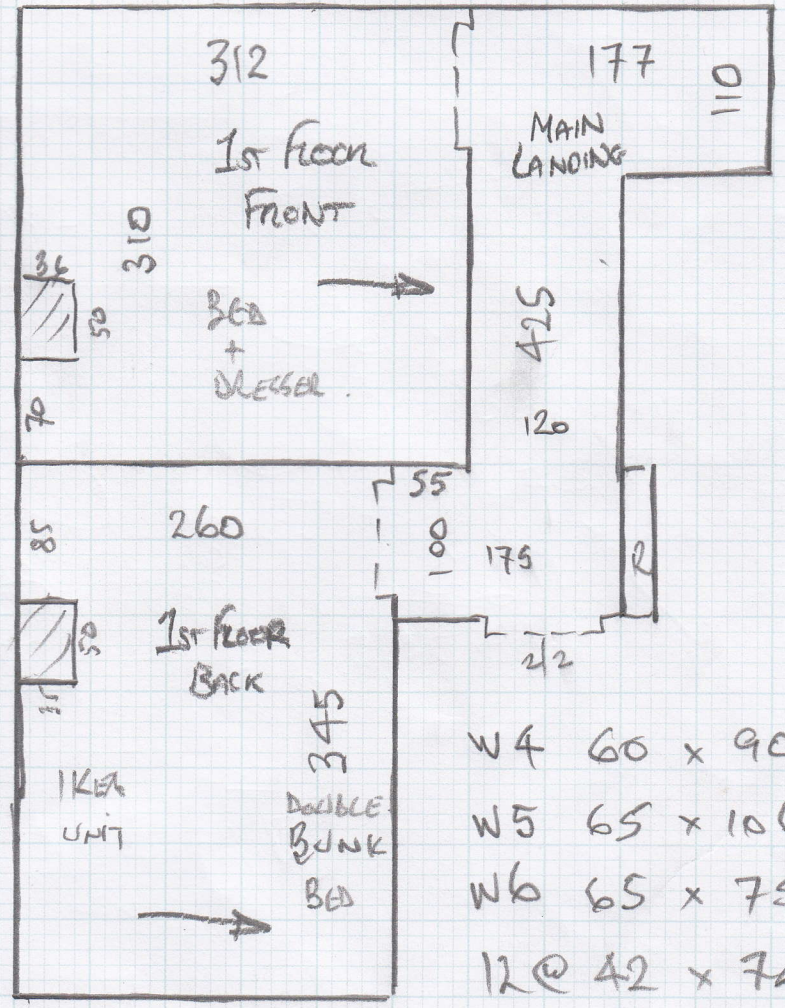 312
177
110
MAIN
LANDING
1st Floor
FRONT
310
36
50
BED
+
DRESSER.
70
425
120
55
260
85
100
175
R
1st FLOOR
BACK
50
35
2/2
345
IKEA
UNIT
DOUBLE
BUNK
BED
W4 60 x 90
W5 65 x
W6 65 x
12 @ 42 x